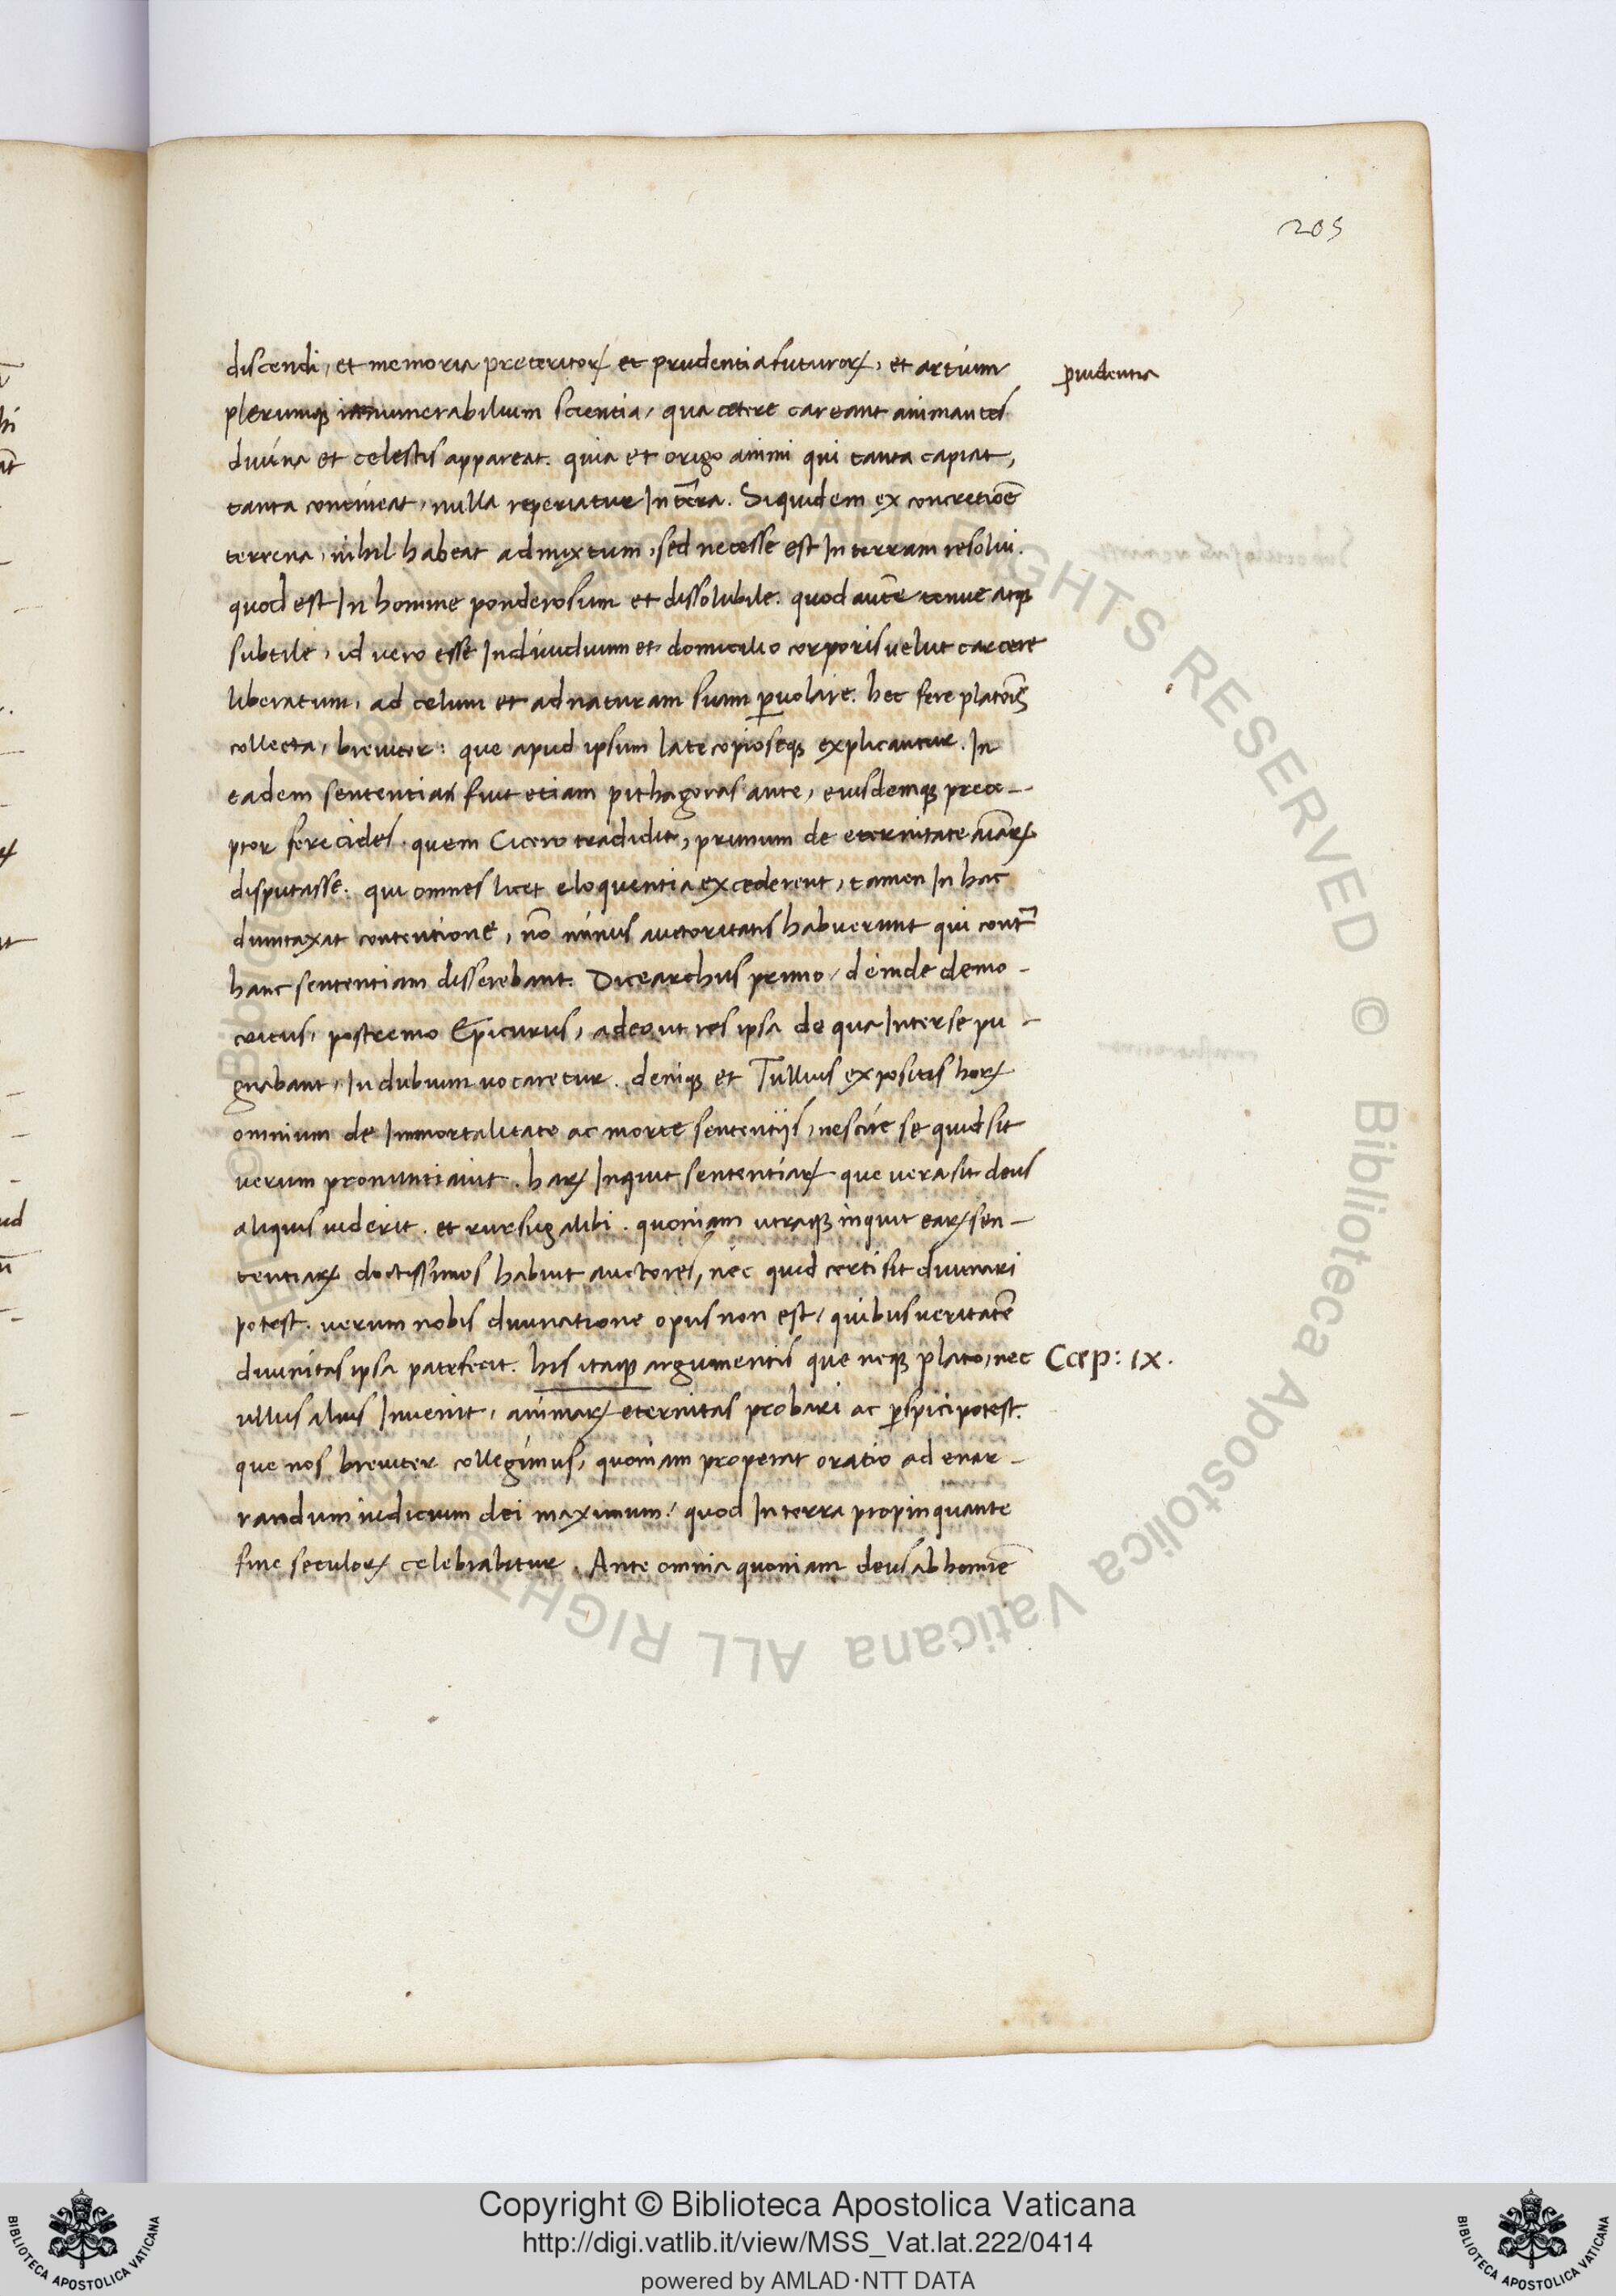 205
discendi, et memoria preteritoꝝ et prudentia futuroꝝ, et artium
prudentia
plerumqꝫ innumerabilium scientia, qua cetere careant animantes
diuina et celestis appareat. quia et origo animi qui tanta capiat,
tanta contineat, nulla reperiatur In terra. Siquidem ex concretiōe
terrena, nihil habeat admixtum, sed necesse est In terram resolui.
quod est In homine ponderosum et dissolubile. quod autē tenue atqꝫ
subtile, id vero esse Indiuiduum et domicilio corporis velut carcere
liberatum, ad celum et ad naturam suam ꝑuolare. hec fere platōis
collecta, breuiter: que apud ipsum late copioseqꝫ explicantur. In
eadem sententia fuit etiam pithagoras ante, eiusdemqꝫ prece-
ptor ferecides. quem Cicero tradidit, primum de eternitate aīaꝝ
disputasse. qui omnes licet eloquentia excederent, tamen In hac
dumtaxat contentione, nō minus auctoritatis habuerunt qui cont̄
hanc sententiam disserebant. Dicearchus primo, deinde demo-
critus, postremo Epicurus, adeo ut res ipsa de qua Inter se pu-
gnabant, In dubium uocaretur. deniqꝫ et Tullius expositis hoꝝ
omnium de Immortalitate ac morte sententijs, nescire se quid sit
verum pronuntiauit. haꝝ Inquit sententiaꝝ que vera sit deus
aliquis uiderit. et rursus alibi. quoniam utraqꝫ inquit eaꝝ sen-
tentiaꝝ doctissimos habuit auctores, nec quid certi sit diuinari
potest. verum nobis diuinatione opus non est, quibus veritatē
diuinitas ipsa patefecit. his itaqꝫ argumentis que neqꝫ plato, nec
Cap: IX.
ullus alius Inuenit, animaꝝ eternitas probari ac ꝑspici potest.
que nos breuiter collegimus, quoniam properat oratio ad enar-
randum iudicium dei maximum, quod In terra propinquante
fine seculoꝝ celebrabitur. Ante omnia quoniam deus ab homīe
© Biblioteca Apostolica Vaticana ALL RIGHTS RESERVED
Copyright © Biblioteca Apostolica Vaticana
http://digi.vatlib.it/view/MSS_Vat.lat.222/0414
powered by AMLAD·NTT DATA
BIBLIOTECA APOSTOLICA VATICANA
BIBLIOTECA APOSTOLICA VATICANA